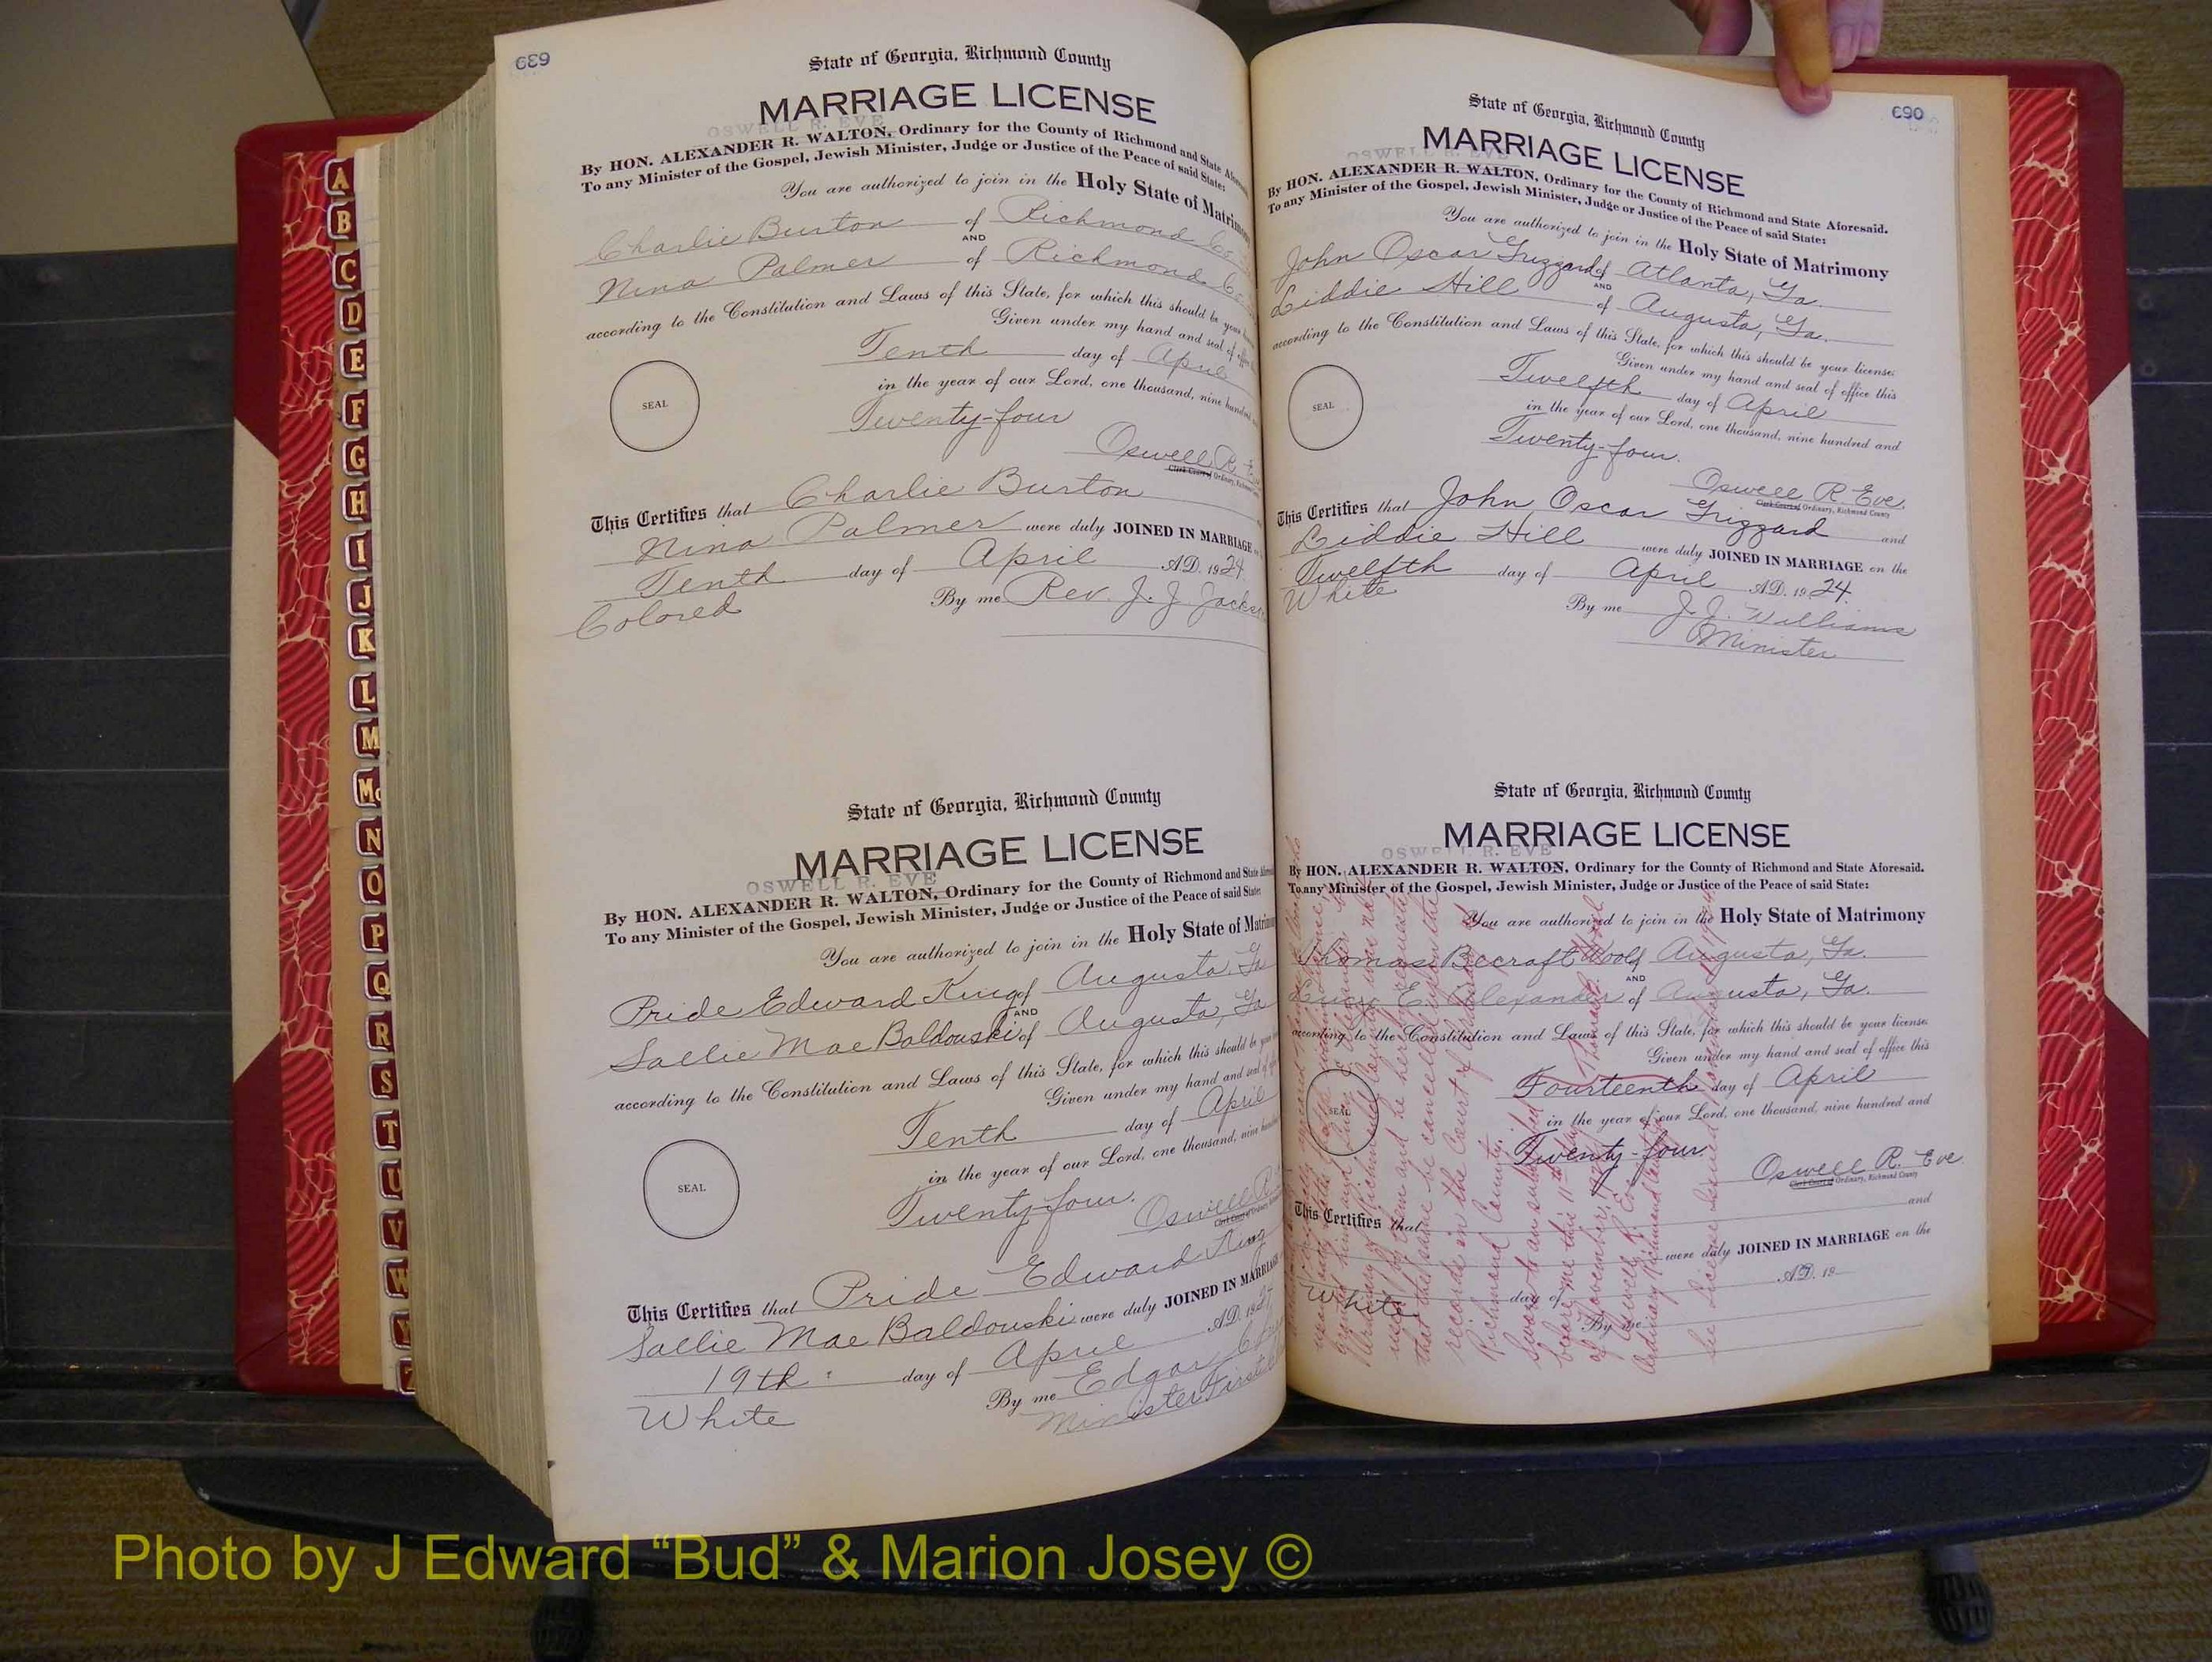 689
State of Georgia, Richmond County
MARRIAGE LICENSE
OSWELL R. EVE
By HON. ALEXANDER R. WALTON, Ordinary for the County of Richmond and State Aforesaid
To any Minister of the Gospel, Jewish Minister, Judge or Justice of the Peace of said State:
You are authorized to join in the Holy State of Matrimony
Charlie Burton of Richmond Co
AND
Nina Palmer of Richmond Co
according to the Constitution and Laws of this State, for which this should be your
Given under my hand and seal of office
Tenth day of April
in the year of our Lord, one thousand, nine hundred
Twenty-four
SEAL
Oswell R.
Clerk Court of Ordinary, Richmond
This Certifies that Charlie Burton
Nina Palmer were duly JOINED IN MARRIAGE
Tenth day of April A.D. 1924
Colored By me Rev. J. J.
State of Georgia, Richmond County
MARRIAGE LICENSE
OSWELL R. EVE
By HON. ALEXANDER R. WALTON, Ordinary for the County of Richmond and State
To any Minister of the Gospel, Jewish Minister, Judge or Justice of the Peace of said State:
You are authorized to join in the Holy State of
Pride Edward King of Augusta, Ga
AND
Sallie Mae Baldowski of Augusta, Ga
according to the Constitution and Laws of this State, for which this should be
Given under my hand and seal of
Tenth day of April
in the year of our Lord, one thousand, nine
Twenty four.
SEAL
Oswell R
Clerk Court of Ordinary
This Certifies that Pride Edward King
Sallie Mae Baldowski were duly JOINED IN MARRIAGE
19th day of April A.D. 192
White By me Edgar
Minister First
690
State of Georgia, Richmond County
MARRIAGE LICENSE
OSWELL R. EVE
By HON. ALEXANDER R. WALTON, Ordinary for the County of Richmond and State Aforesaid.
To any Minister of the Gospel, Jewish Minister, Judge or Justice of the Peace of said State:
You are authorized to join in the Holy State of Matrimony
John Oscar Grizzard of Atlanta, Ga.
AND
Liddie Hill of Augusta, Ga.
according to the Constitution and Laws of this State, for which this should be your license.
Given under my hand and seal of office this
Twelfth day of April
in the year of our Lord, one thousand, nine hundred and
Twenty-four.
SEAL
Oswell R. Eve
Clerk Court of Ordinary, Richmond County
This Certifies that John Oscar Grizzard and
Liddie Hill were duly JOINED IN MARRIAGE on the
Twelfth day of April A.D. 1924.
White By me J. J. Williams
Minister
State of Georgia, Richmond County
MARRIAGE LICENSE
OSWELL R. EVE
By HON. ALEXANDER R. WALTON, Ordinary for the County of Richmond and State Aforesaid.
To any Minister of the Gospel, Jewish Minister, Judge or Justice of the Peace of said State:
You are authorized to join in the Holy State of Matrimony
Thomas Becraft Woolf Augusta, Ga.
AND
E. Alexander of Augusta, Ga.
according to the Constitution and Laws of this State, for which this should be your license.
Given under my hand and seal of office this
Fourteenth day of April
in the year of our Lord, one thousand, nine hundred and
Twenty-four
SEAL
Oswell R. Eve
Clerk Court of Ordinary, Richmond County
This Certifies that and
were duly JOINED IN MARRIAGE on the
day of A.D. 19
White By me
that the same be cancelled upon the
records in the Court of
Richmond County.
Sworn to and subscribed
before me this 11th
of November, 192
Oswell R. Eve
Ordinary Richmond County
See License issued
A
B
C
D
E
F
G
H
I
J
K
L
M
Mc
N
O
P
Q
R
S
T
U
V
W
Y
Z
Photo by J Edward “Bud” & Marion Josey ©